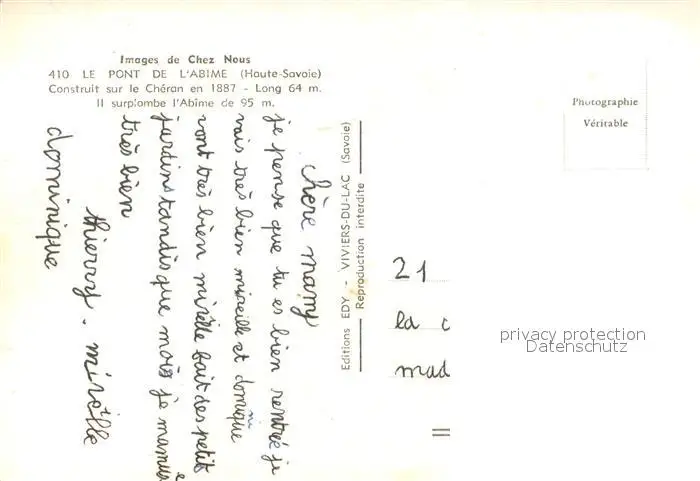 Images de Chez Nous
410 LE PONT DE L'ABIME (Haute-Savoie)
Construit sur le Chéran en 1887 - Long 64 m.
Il surplombe l'Abime de 95 m.
chère mamy
je pense que tu es bien rentrée je
vais très bien mireille et domique
ni
vont très bien mireille fait des petits
jardins tandis que mois je mamus
e
très bien
thierry. mireille
dominique
Editions EDY - VIVIERS-DU-LAC (Savoie)
Reproduction interdite
Photographie
Véritable
21
la c
mad
privacy protection
Datenschutz